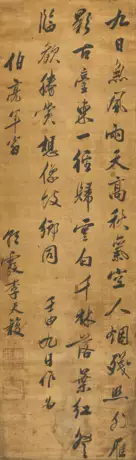 九日無風雨天高秋氣空人烟殘照外雁
影古臺東一徑歸雲白千林落葉紅登
臨饒勝賞想像故鄉同 壬申九日作為
伯高年翁
容齋李天馥